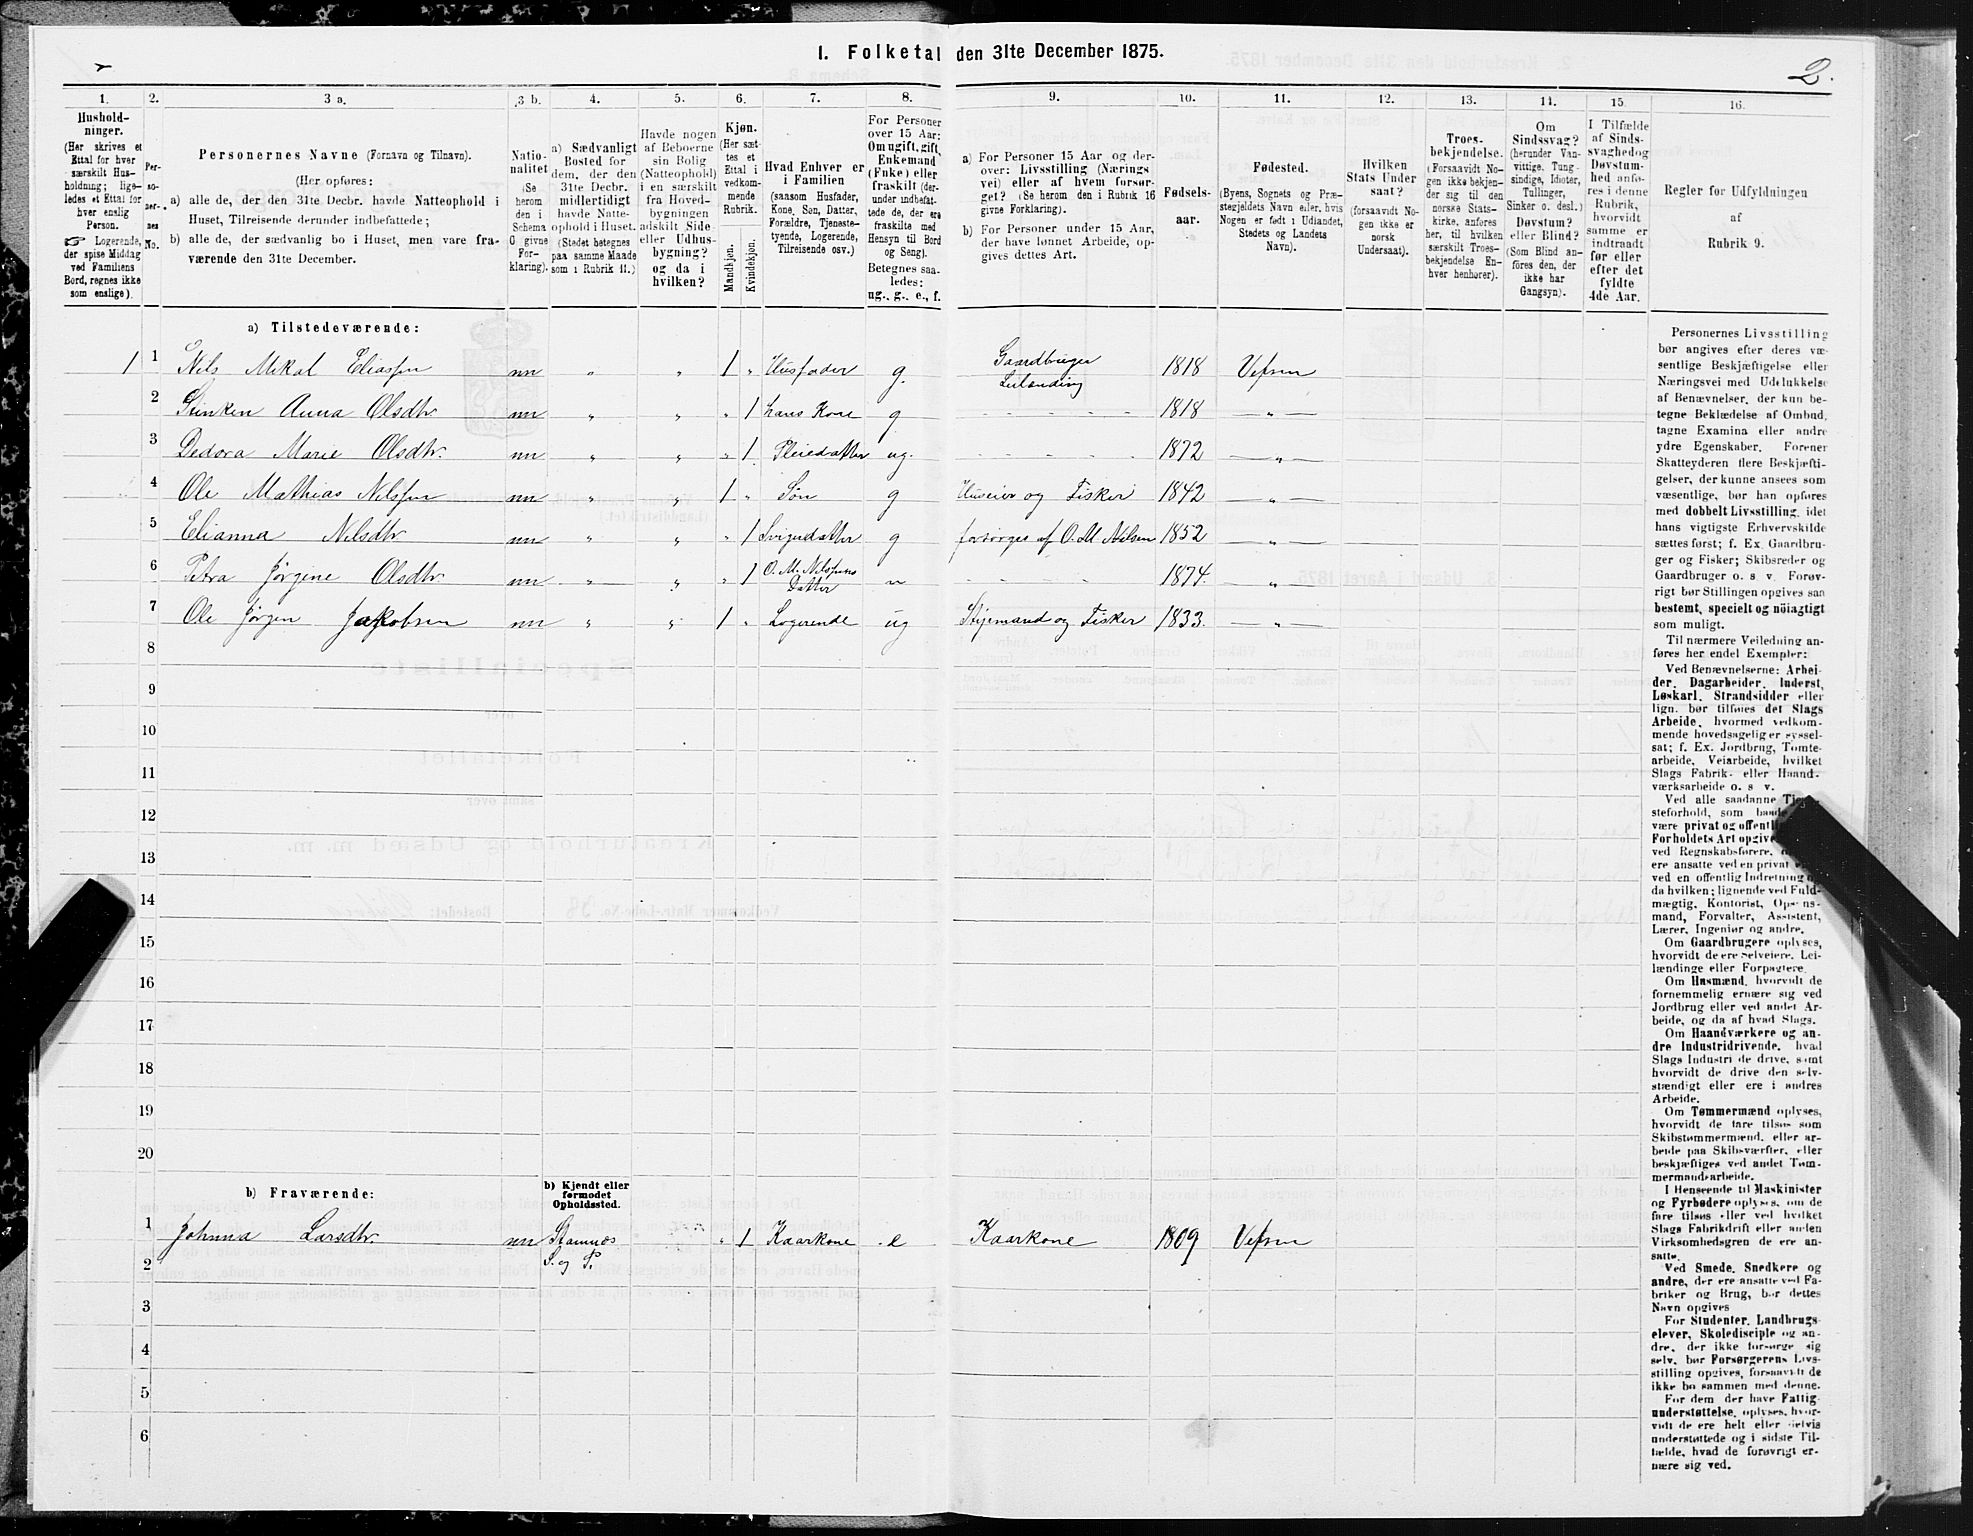 1. Folketal den 31te December 1875.
2.
1. 2. 3 a. 3 b. 4. 5. 6. 7. 8. 9. 10. 11. 12. 13. 14. 15. 16.
Hushold-
ninger.
(Her skrives et
Ettal for hver
særskilt Hus-
holdning; lige-
ledes et Ettal for
hver enslig
Person.
☞ Logerende,
der spise Middag
ved Familiens
Bord, regnes ikke
som enslige).
Per-
so-
ner-
nes
No.
Personernes Navne (Fornavn og Tilnavn).
(Her opføres:
a) alle de, der den 31te Decbr. havde Natteophold i
Huset, Tilreisende derunder indbefattede;
b) alle de, der sædvanlig bo i Huset, men vare fra-
værende den 31te December.
Natio-
nalitet
(Se
herom
den i
Schema
C givne
For-
klaring).
a) Sædvanligt
Bosted for
dem, der den
31te Decbr.
midlertidigt
havde Natte-
ophold i Huset.
(Stedet betegnes
paa samme Maade
som i Rubrik 11.)
Havde nogen
af Beboerne
sin Bolig
(Natteophold)
i en særskilt
fra Hoved-
bygningen
adskilt Side-
eller Udhus-
bygning?
og da i
hvilken?
Kjøn.
(Her sæt-
tes et
Ettal i
vedkom-
mende
Rubrik.
Mandkjøn.
Kvindekjøn.
Hvad Enhver er
i Familien
(saasom Husfader,
Kone, Søn, Datter,
Forældre, Tjeneste-
tyende, Logerende,
Tilreisende osv.)
For Personer
over 15 Aar:
Om ugift, gift,
Enkemand
(Enke) eller
fraskilt (der-
under indbefat-
tede de, der ere
fraskilte med
Hensyn til Bord
og Seng).
Betegnes saa-
ledes:
ug., g., e., f.
a) For Personer 15 Aar og der-
over: Livsstilling (Nærings-
vei) eller af hvem forsør-
get? (Se herom den i Rubrik 16
givne Forklaring).
b) For Personer under 15 Aar,
der have lønnet Arbeide, op-
gives dettes Art.
Fødsels-
aar.
Fødested.
(Byens, Sognets og Præ-
stegjeldets Navn eller, hvis
Nogen er født i Udlandet,
Stedets og Landets
Navn).
Hvilken
Stats Under
saat?
(forsaavidt No-
gen ikke er
norsk
Undersaat).
Troes-
bekjendelse.
(Forsaavidt No-
gen ikke bekjen-
der sig til den
norske Stats-
kirke, anføres
her, til hvilken
særskilt Troes-
bekjendelse En-
hver henhører).
Om
Sindssvag?
(herunder Van-
vittige, Tung-
sindige, Idioter,
Tullinger,
Sinker o. desl.)
Døvstum?
eller Blind?
(Som Blind an-
føres den, der
ikke har
Gangsyn).
I Tilfælde
af Sinds-
svaghed og
Døvstum-
hed anfø-
res i denne
Rubrik,
hvorvidt
samme er
indtraadt
før eller
efter det
fyldte
4de Aar.
Regler for Udfyldningen
af
Rubrik 9.
a) Tilstedeværende:
1 1 Nils Mikal Eliassen nn „ „ 1 „ Husfader g. Gaardbruger Leilænding 1818 Vefsen
2 Stinken Anna Olsdtr nn „ „ „ 1 hans Kone g 1818 — „ —
3 Dedora Marie Olsdtr. nn „ „ „ 1 Pleiedatter ug. 1872 — „ —
4 Ole Mathias Nilssen nn „ „ 1 „ Søn g Huseier og Fisker 1842 — „ —
5 Elianna Nilsdtr nn „ „ „ 1 Svigerdatter g forsørges af O. M. Nilsen 1852 — „ —
6 Petra Jørgine Olsdtr nn „ „ „ 1 O. M. Nilssens Datter 1874. — „ —
7 Ole Jørgen Jakobsen nn „ „ 1 „ Logerende ug Styrmand og Fisker 1833. — „ —
8
9
10
11
12
13
14
15
16
17
18
19
20
b) Fraværende:
b) Kjendt eller
formodet
Opholdssted.
1 Johnna Larsdtr nn Stamnæs „ 1 Kaarkone e Kaarkone 1809 Vefsen
2 S. og P.
3
4
5
6
Personernes Livsstilling
bør angives efter deres væ-
sentlige Beskjæftigelse eller
Næringsvei med Udelukkelse
af Benævnelser, der kun be-
tegne Beklædelse af Ombud,
tagne Examina eller andre
ydre Egenskaber. Forener
Skatteyderen flere Beskjæfti-
gelser, der kunne ansees som
væsentlige, bør han opføres
med dobbelt Livsstilling, idet
hans vigtigste Erhvervskilde
sættes først; f. Ex. Gaardbru-
ger og Fisker; Skibsreder og
Gaardbruger o. s. v. Forøv-
rigt bør Stillingen opgives saa
bestemt, specielt og nöiagtigt
som muligt.
Til nærmere Veiledning an-
føres her endel Exempler:
Ved Benævnelserne: Arbei-
der, Dagarbeider, Inderst,
Løskarl, Strandsidder eller
lign. bør tilføies det Slags
Arbeide, hvormed vedkom-
mende hovedsagelig er syssel-
sat; f. Ex. Jordbrug, Tomte-
arbeide, Veiarbeide, hvilket
Slags Fabrik- eller Haand-
værksarbeide o. s. v.
Ved alle saadanne
steforhold, som
være privat og
Forholdets Art
ved Regnskabsførere,
ere ansatte ved en privat
ved en offentlig Indretning
da hvilken; lignende ved Fuld-
mægtig, Kontorist, Opsyns-
mand, Forvalter, Assistent,
Lærer, Ingeniør og andre.
Om Gaardbrugere oplyses,
hvorvidt de ere Selveiere, Lei-
lændinge eller Forpagtere.
Om Husmænd, hvorvidt de
fornemmelig ernære sig ved
Jordbrug eller ved andet Ar-
beide, og da af hvad Slags.
Om Haandværkere og an-
dre Industridrivende, hvad
Slags Industri de drive, samt
hvorvidt de drive den selv-
stændigt eller ere i andres
Arbeide.
Om Tømmermænd oplyses,
hvorvidt de fare tilsøs som
Skibstømmermænd, eller ar-
beide paa Skibsværfter, eller
beskjæftiges ved andet Tøm-
mermandsarbeide.
I Henseende til Maskinister
og Fyrbødere oplyses, om de
fare tilsøs eller ved hvilket
Slags Fabrikdrift eller anden
Virksomhedsgren de ere an-
satte.
Ved Smede, Snedkere og
andre, der ere ansatte ved Fa-
briker og Brug, bør dettes
Navn opgives
For Studenter, Landbrugs-
elever, Skoledisciple og an-
dre, der ikke forsørge sig
selv, bør Forsørgerens Livs-
stilling opgives, forsaavidt de
ikke bo sammen med denne.
For dem der have Fattig-
understøttelse, oplyses, hvor-
vidt de ere helt eller delvis
understøttede og i sidste Til-
fælde, hvad de forøvrigt er-
nære sig ved.